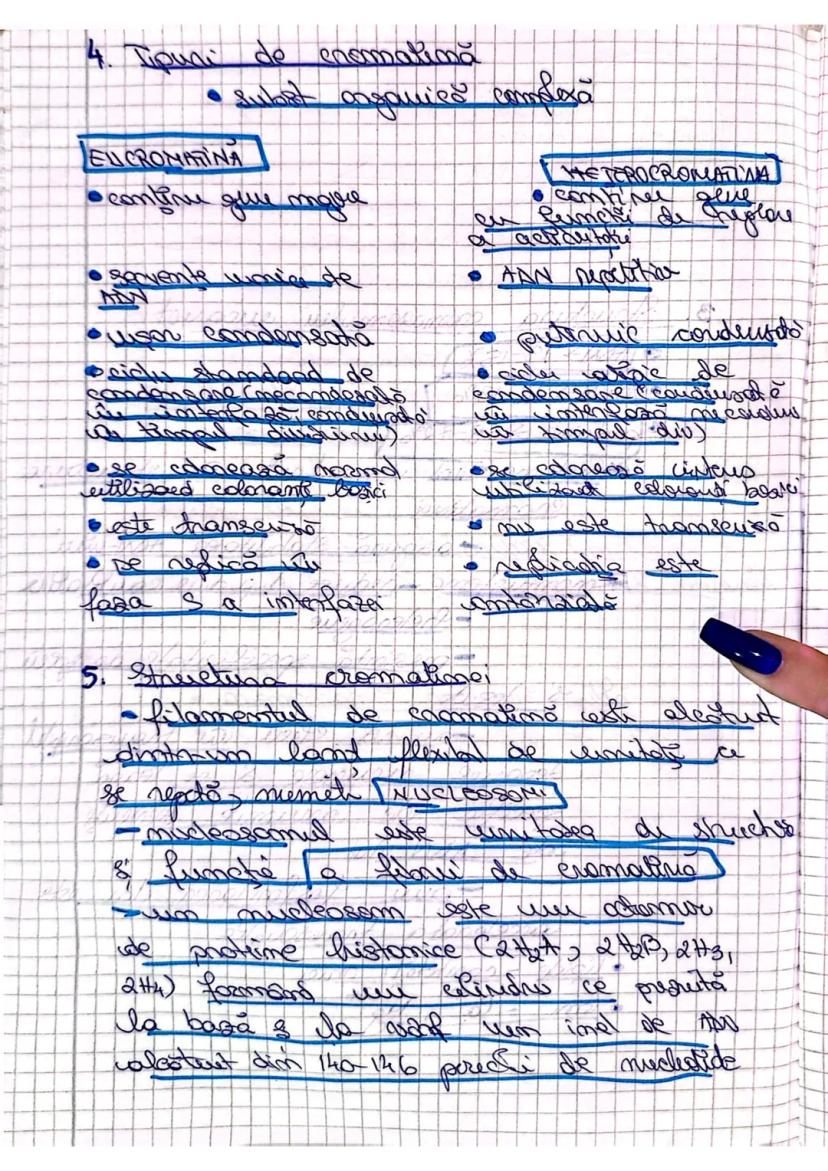 4. Tipuri de cromatină
• subst organică complexă
EUCROMATINĂ
• conține gene majore
• secvențe unice de
ADN
• ușor condensată
• ciclu standard de
condensare (necondensată
în interfază, condensată
în timpul diviziunii)
• se colorează normal
utilizând coloranți bazici
• este transcrisă
• se replică în
faza S a interfazei
HETEROCROMATINA
• conține gene
cu funcții de reglare
a activității
• ADN repetitiv
• puternic condensată
• ciclu atipic de
condensare (condensată
în interfază necondens
în timpul div)
• se colorează intens
utilizând coloranți bazici
• nu este transcrisă
• replicația este
întârziată
5. Structura cromatinei
- filamentul de cromatină este alcătuit
dintr-un lanț flexibil de unități ce
se repetă, numite NUCLEOSOMI
- nucleosomul este unitatea de structură
și funcție a fibrei de cromatină
- un nucleosom este un octamer
de proteine histonice (2H2A, 2H2B, 2H3,
2H4) formând un cilindru ce prezintă
la bază și la vârf un inel de ADN
alcătuit din 140-146 perechi de nucleotide